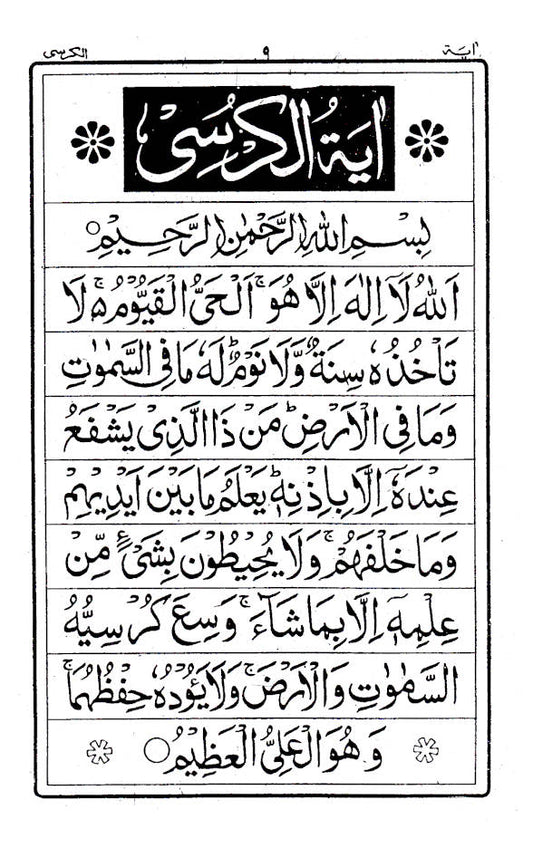 اٰیة ۹ الكرسی
اٰیَةُ الْكُرْسِیْ
بِسْمِ اللّٰهِ الرَّحْمٰنِ الرَّحِیْمِ○
اَللّٰهُ لَاۤ اِلٰهَ اِلَّا هُوَۚ اَلْحَیُّ الْقَیُّوْمُ ۚ۵ لَا
تَاْخُذُهٗ سِنَةٌ وَّلَا نَوْمٌؕ لَهٗ مَا فِی السَّمٰوٰتِ
وَمَا فِی الْاَرْضِؕ مَنْ ذَا الَّذِیْ یَشْفَعُ
عِنْدَهٗۤ اِلَّا بِاِذْنِهٖؕ یَعْلَمُ مَا بَیْنَ اَیْدِیْهِمْ
وَمَا خَلْفَهُمْۚ وَلَا یُحِیْطُوْنَ بِشَیْءٍ مِّنْ
عِلْمِهٖۤ اِلَّا بِمَا شَآءَۚ وَسِعَ كُرْسِیُّهُ
السَّمٰوٰتِ وَالْاَرْضَۚ وَلَا یَـُٔوْدُهٗ حِفْظُهُمَاۚ
وَهُوَ الْعَلِیُّ الْعَظِیْمُ○